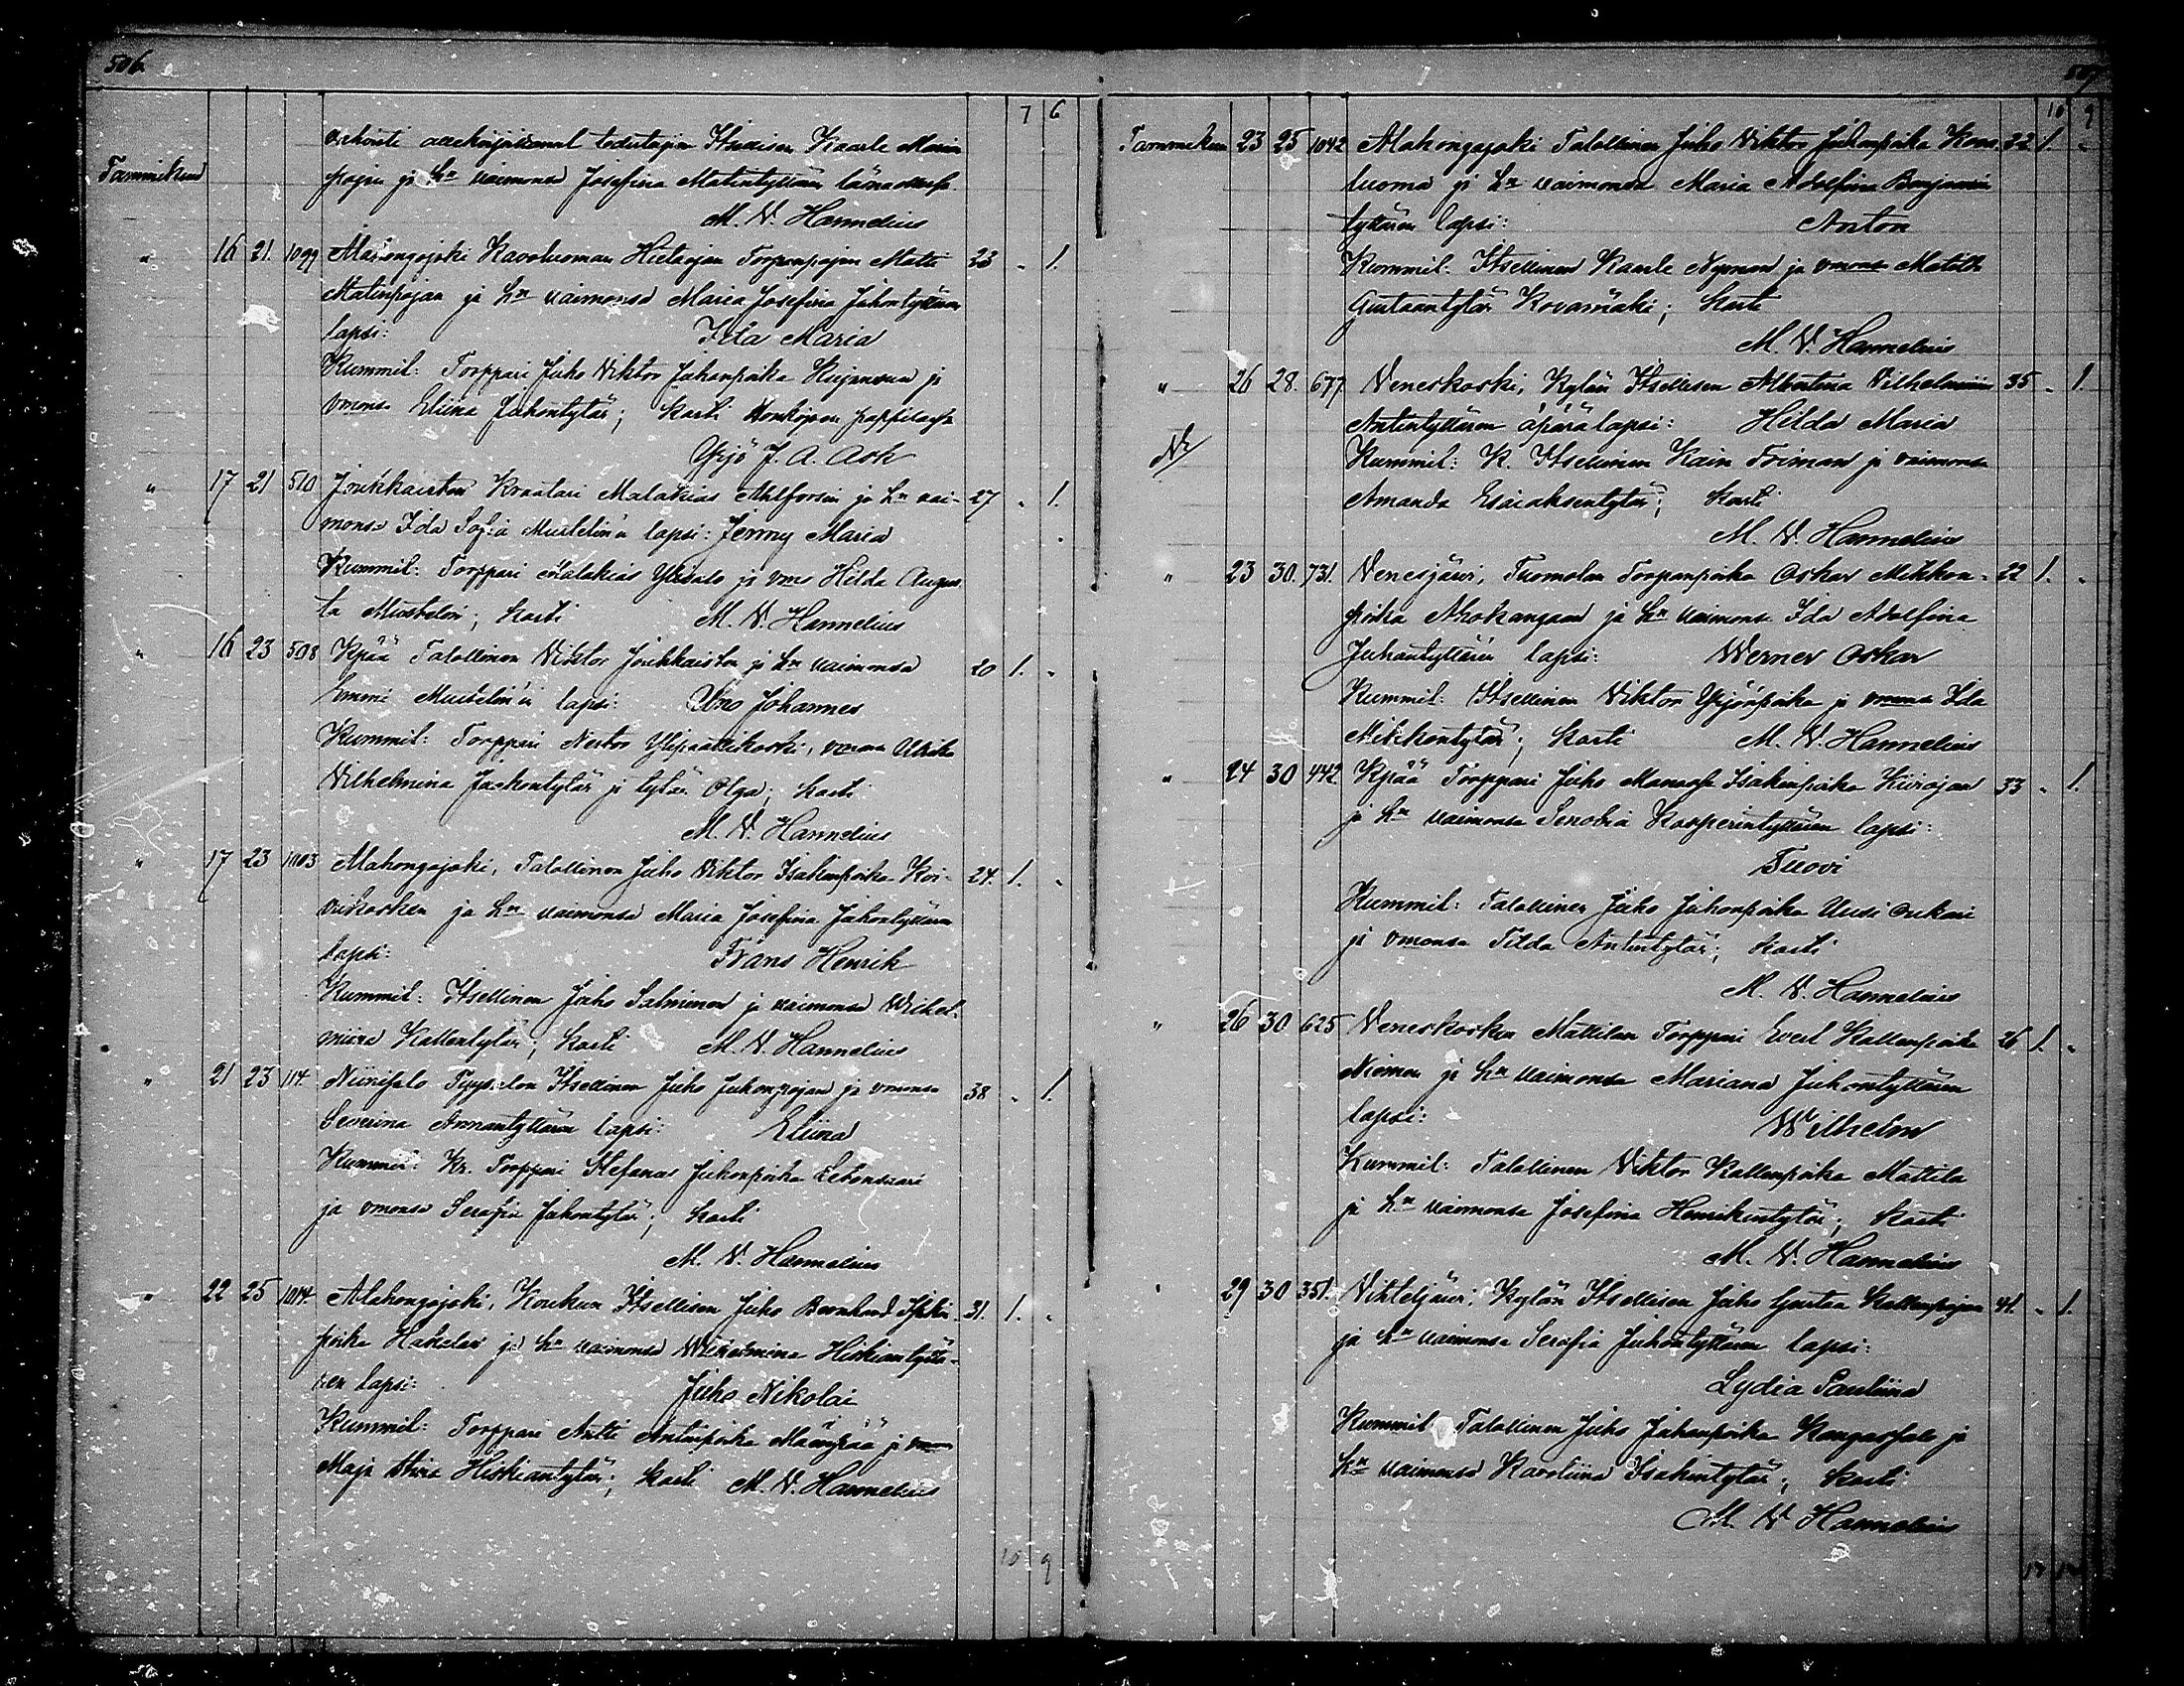 506
7 6
allekirjoittanut todistajain Itsellisen Kaarle
Tammikuu pojan ja hn vaimonsa Josefina Matintyttären
M. V. Hannelius
" 16 21. 1099 Alahongajoki Kavoluoman Torpanpojan Matti 23 " 1.
Matinpojan ja hn vaimonsa Maria Josefina Juhontyttären
lapsi: Ida Maria
Kummit: Torppari Juho Viktor Juhonpoika ja
vmonsa Eliina Juhontytär; kasti pappilassa
Yrjö J. A. Ask
" 17 21 510 Joukkaisten Kraatari Malakias Ahlforsin ja hn vai- 27 " 1.
monsa Ida Sofia Mustelin'in lapsi: Jenny Maria
Kummit: Torppari Malakias Ylisalo ja vmo Hilda Augus
ta Mustelin; kasti M. V. Hannelius
" 16 23 508 Kpää Talollinen Viktor Joukkaisten ja hn vaimonsa 20 1. "
Emmi Mustelin'in lapsi: Uno Johannes
Kummit: Torppari Nestor Ylipaattikoski, vmonsa Ulriika
Vilhelmina Jaakontytär ja tytär Olga; kasti
M. V. Hannelius
" 17 23 1003 Alahongajoki, Talollinen Juho Viktor Isakinpoika Koi- 24. 1. "
vukosken ja hn vaimonsa Maria Josefina Juhontyttären
lapsi: Frans Henrik
Kummit: Itsellinen Juho Salminen ja vaimonsa Wilhel-
miina Kallentytär; kasti M. V. Hannelius
" 21 23 114. Niinisalo Itsellinen Juho Juhonpojan ja vmonsa 38 " 1.
Severina Annantyttären lapsi: Eliina
Kummit: Kr. Torppari Stefanus Juhonpoika
ja vmonsa Serafia Juhontytär; kasti
M. V. Hannelius
" 22 25 1014. Alahongajoki, Koukun Itsellisen Juho Bernhard 31. 1. "
poika ja hn vaimonsa Wilhelmina Hiskiantyttä-
ren lapsi: Juho Nikolai
Kummit: Torppari Antti Antinpoika Mäenpää ja vmonsa
Maja Stiva Hiskiantytär; kasti M. V. Hannelius
10 9
507
10 9
Tammikuu 23 25 1042 Alahongajoki Talollinen Juho Viktor Juhonpoika 22 1. "
luoma ja hn vaimonsa Maria Adolfina Benjamin
tyttären lapsi: Anton
Kummit: Itsellinen Kaarle Nyman ja vmonsa
Gustaantytär Kovamäki; kasti
M. V. Hannelius
" 26 28. 677 Veneskoski, Kylän Itsellisen Albertina Vilhelmiina 35 " 1.
Antintyttären äpärä lapsi: Hilda Maria
Kummit: K. Itsellinen Kain Friman ja vaimonsa
Amanda Esaiaksentytär; kasti
M. V. Hannelius
" 23 30. 731. Venesjärvi, Tuomolan Torpanpoika Oskar Mikkon- 22 1. "
poika Ahokangaan ja hn vaimonsa Ida Adolfina
Juhantyttären lapsi: Werner Oskar
Kummit: Itsellinen Viktor Yrjönpoika ja vmonsa Ida
Mikkontytär; kasti M. V. Hannelius
" 24 30 442 Kpää Torppari Juho Manasse Isakinpoika 33 " 1.
ja hn vaimonsa Senobia Kasperintyttären lapsi:
Tuovi
Kummit: Talollinen Juho Juhonpoika Uusi
ja vmonsa Tilda Antintytär; kasti
M. V. Hannelius
" 26 30 625 Veneskosken Mattilan Torppari Evert Kallenpoika 26 1. "
Niemen ja hn vaimonsa Mariana Juhontyttären
lapsi: Wilhelm
Kummit: Talollinen Viktor Kallenpoika Mattila
ja hn vaimonsa Josefina Henrikintytär; kasti
M. V. Hannelius
" 29 30 351. Vihteljärvi, Kylän Itsellisen Juho Gustaa Kallenpojan 41. " 1.
ja hn vaimonsa Serafia Juhontyttären lapsi:
Lydia Pauliina
Kummit Talollinen Juho Juhanpoika Kangassalo ja
hn vaimonsa Karoliina Isakintytär; kasti
M. V. Hannelius